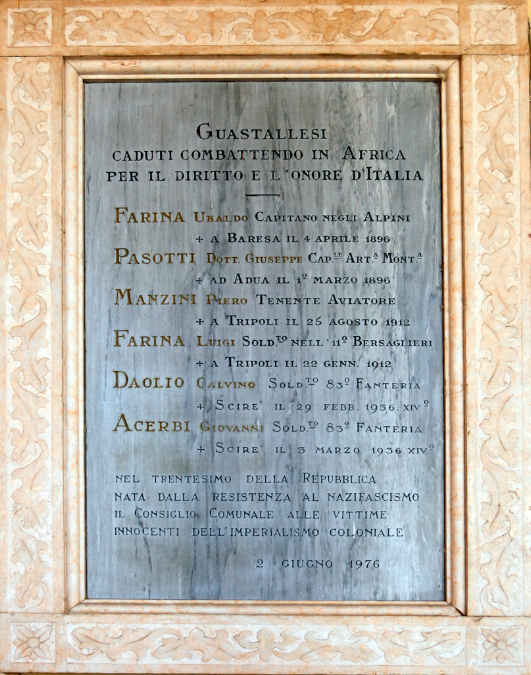 GUASTALLESI
CADUTI COMBATTENDO IN AFRICA
PER IL DIRITTO E L'ONORE D'ITALIA
FARINA UBALDO CAPITANO NEGLI ALPINI
+ A BARESA IL 4 APRILE 1896
PASOTTI DOTT. GIUSEPPE CAP.LE ART.A MONT.A
+ AD ADUA IL 1º MARZO 1896
MANZINI PIERO TENENTE AVIATORE
+ A TRIPOLI IL 25 AGOSTO 1912
FARINA LUIGI SOLD.TO NELL'11º BERSAGLIERI
+ A TRIPOLI IL 22 GENN. 1912
DAOLIO CALVINO SOLD.TO 83º FANTERIA
+ SCIRE' IL 29 FEBB. 1936 XIVº
ACERBI GIOVANNI SOLD.TO 83º FANTERIA
+ SCIRE' IL 3 MARZO 1936 XIVº
NEL TRENTESIMO DELLA REPUBBLICA
NATA DALLA RESISTENZA AL NAZIFASCISMO
IL CONSIGLIO COMUNALE ALLE VITTIME
INNOCENTI DELL'IMPERIALISMO COLONIALE
2 GIUGNO 1976